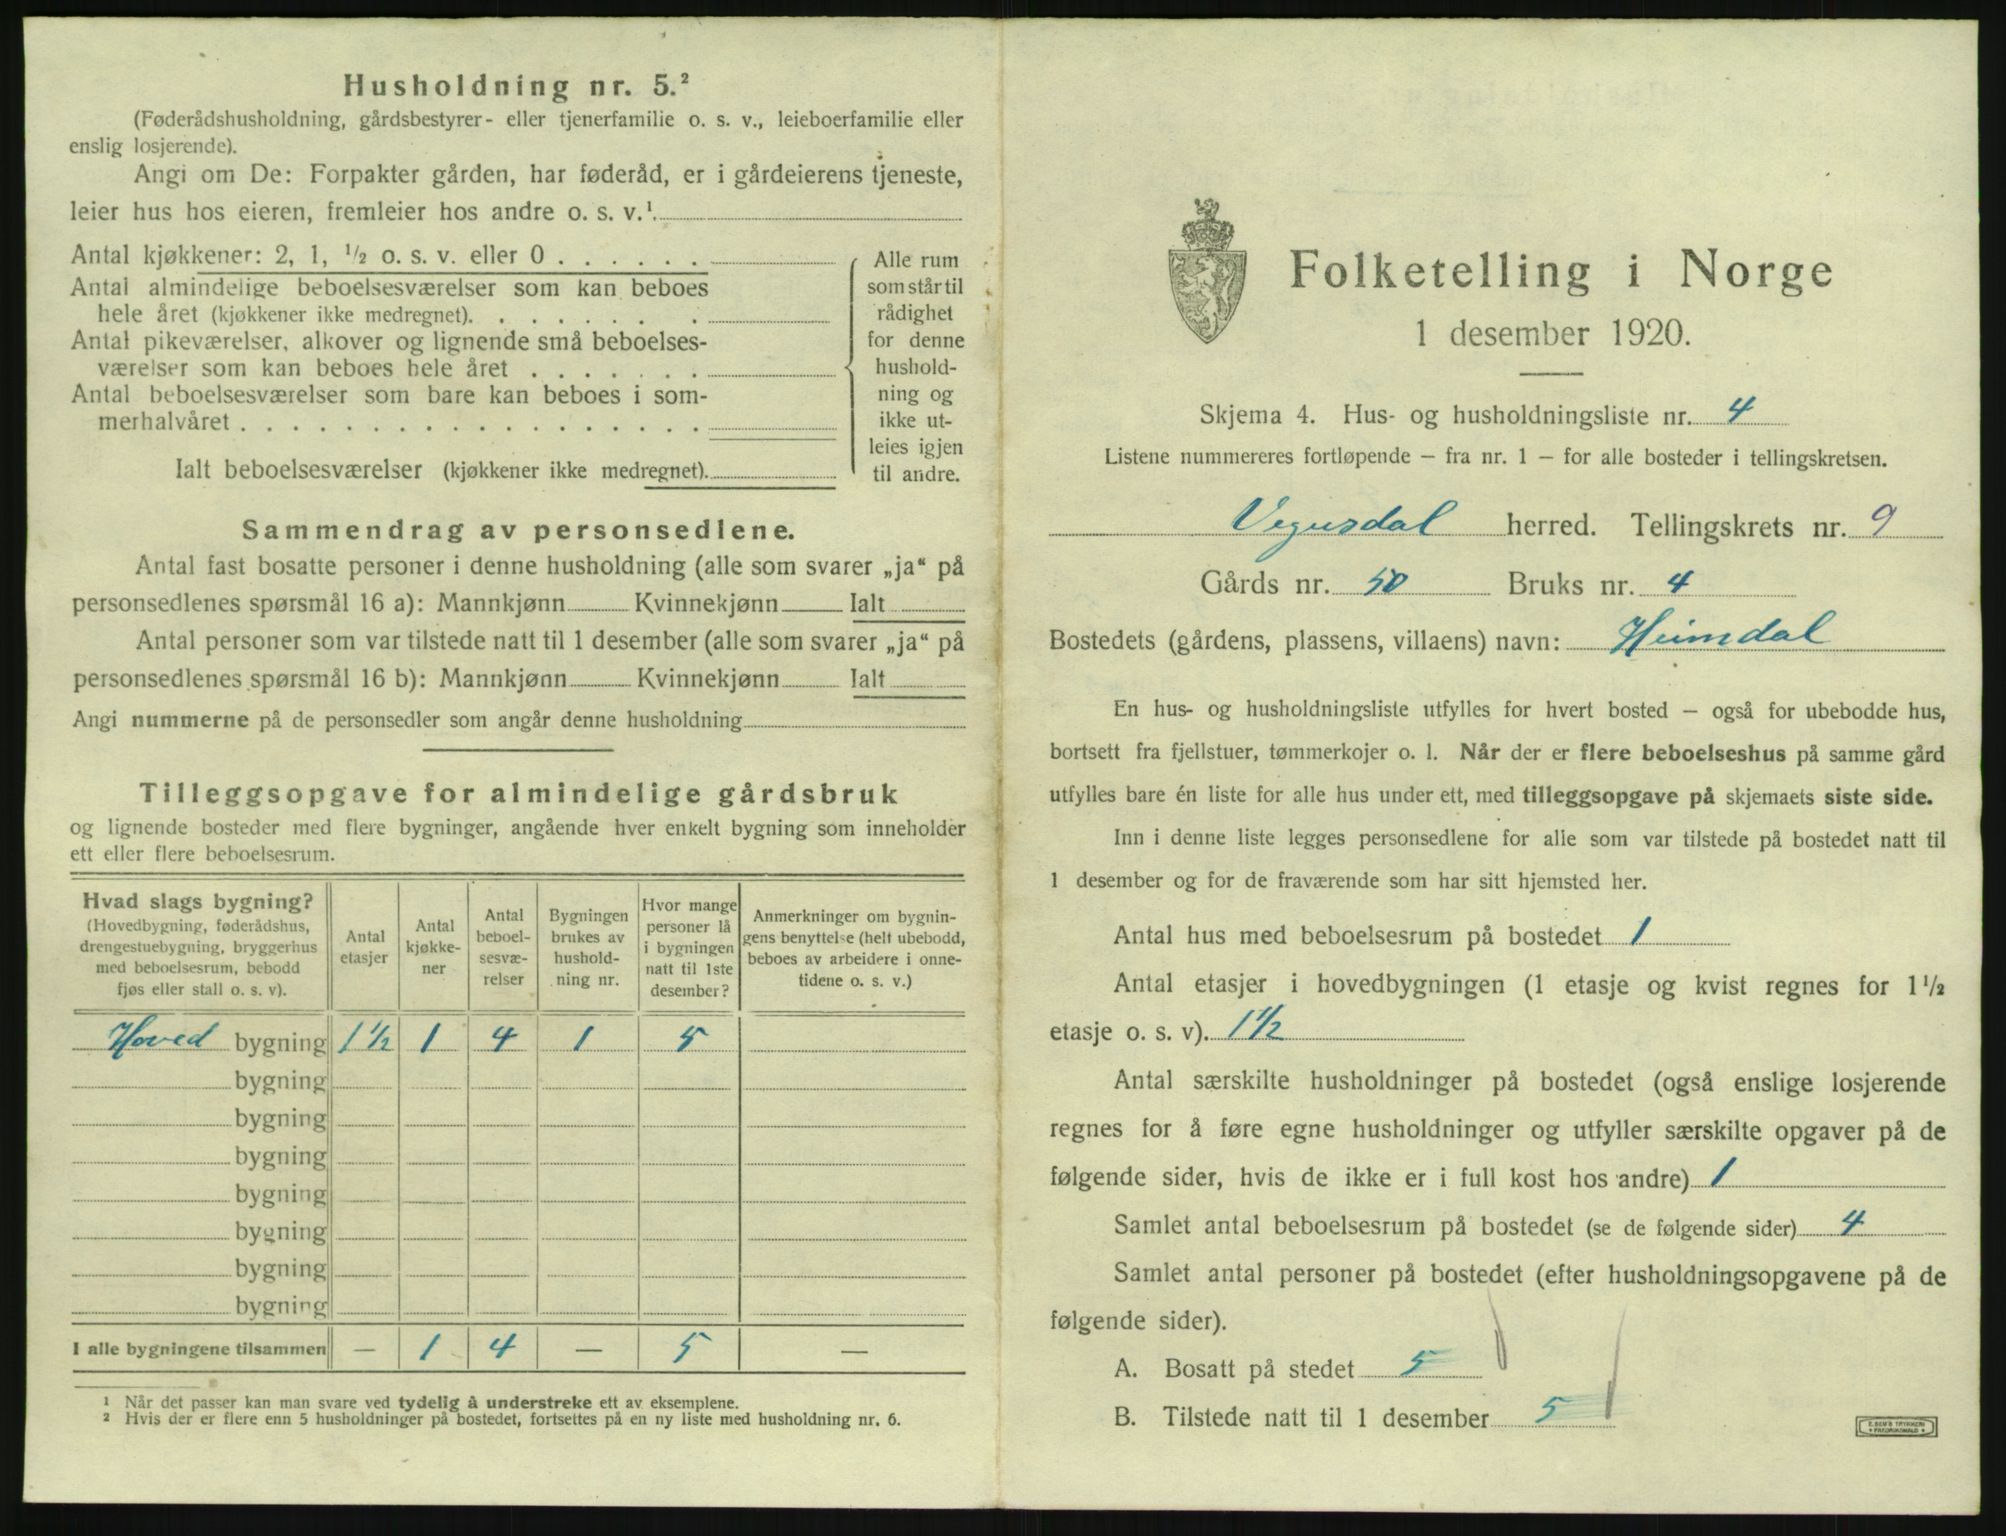 Husholdning nr. 5.²
(Føderådshusholdning, gårdsbestyrer- eller tjenerfamilie o. s. v., leieboerfamilie eller
enslig losjerende).
Angi om De: Forpakter gården, har føderåd, er i gårdeierens tjeneste,
leier hus hos eieren, fremleier hos andre o. s. v.¹
Antal kjøkkener: 2, 1, ½ o. s. v. eller 0 . . . . . .
Antal almindelige beboelsesværelser som kan beboes
hele året (kjøkkener ikke medregnet). . . . . . . .
Antal pikeværelser, alkover og lignende små beboelses-
værelser som kan beboes hele året . . . . . . .
Antal beboelsesværelser som bare kan beboes i som-
merhalvåret . . . . . . . . . . . . . . . . . .
Ialt beboelsesværelser (kjøkkener ikke medregnet).
Alle rum
som står til
rådighet
for denne
hushold-
ning og
ikke ut-
leies igjen
til andre.
Sammendrag av personsedlene.
Antal fast bosatte personer i denne husholdning (alle som svarer „ja“ på
personsedlenes spørsmål 16 a): Mannkjønn Kvinnekjønn Ialt
Antal personer som var tilstede natt til 1 desember (alle som svarer „ja“ på
personsedlenes spørsmål 16 b): Mannkjønn Kvinnekjønn Ialt
Angi nummerne på de personsedler som angår denne husholdning
Tilleggsopgave for almindelige gårdsbruk
og lignende bosteder med flere bygninger, angående hver enkelt bygning som inneholder
ett eller flere beboelsesrum.
Hvad slags bygning?
(Hovedbygning, føderådshus,
drengestuebygning, bryggerhus
med beboelsesrum, bebodd
fjøs eller stall o. s. v).
Antal
etasjer
Antal
kjøkke-
ner
Antal
beboel-
sesvæ-
relser
Bygningen
brukes av
hushold-
ning nr.
Hvor mange
personer lå
i bygningen
natt til 1ste
desember?
Anmerkninger om bygnin-
gens benyttelse (helt ubebodd,
beboes av arbeidere i onne-
tidene o. s. v.)
Hoved bygning 1½ 1 4 1 5
bygning
bygning
bygning
bygning
bygning
bygning
bygning
I alle bygningene tilsammen — 1 4 — 5 —
¹ Når det passer kan man svare ved tydelig å understreke ett av eksemplene.
² Hvis der er flere enn 5 husholdninger på bostedet, fortsettes på en ny liste med husholdning nr. 6.
Folketelling i Norge
1 desember 1920.
Skjema 4. Hus- og husholdningsliste nr. 4
Listene nummereres fortløpende – fra nr. 1 – for alle bosteder i tellingskretsen.
Vegusdal herred. Tellingskrets nr. 9
Gårds nr. 50 Bruks nr. 4
Bostedets (gårdens, plassens, villaens) navn: Heimdal
En hus- og husholdningsliste utfylles for hvert bosted – også for ubebodde hus,
bortsett fra fjellstuer, tømmerkojer o. l. Når der er flere beboelseshus på samme gård
utfylles bare én liste for alle hus under ett, med tilleggsopgave på skjemaets siste side.
Inn i denne liste legges personsedlene for alle som var tilstede på bostedet natt til
1 desember og for de fraværende som har sitt hjemsted her.
Antal hus med beboelsesrum på bostedet 1
Antal etasjer i hovedbygningen (1 etasje og kvist regnes for 1½
etasje o. s. v). 1½
Antal særskilte husholdninger på bostedet (også enslige losjerende
regnes for å føre egne husholdninger og utfyller særskilte opgaver på de
følgende sider, hvis de ikke er i full kost hos andre) 1
Samlet antal beboelsesrum på bostedet (se de følgende sider) 4
Samlet antal personer på bostedet (efter husholdningsopgavene på de
følgende sider).
A. Bosatt på stedet 5
B. Tilstede natt til 1 desember 5
E. SEM'S TRYKKERI
FREDRIKSHALD